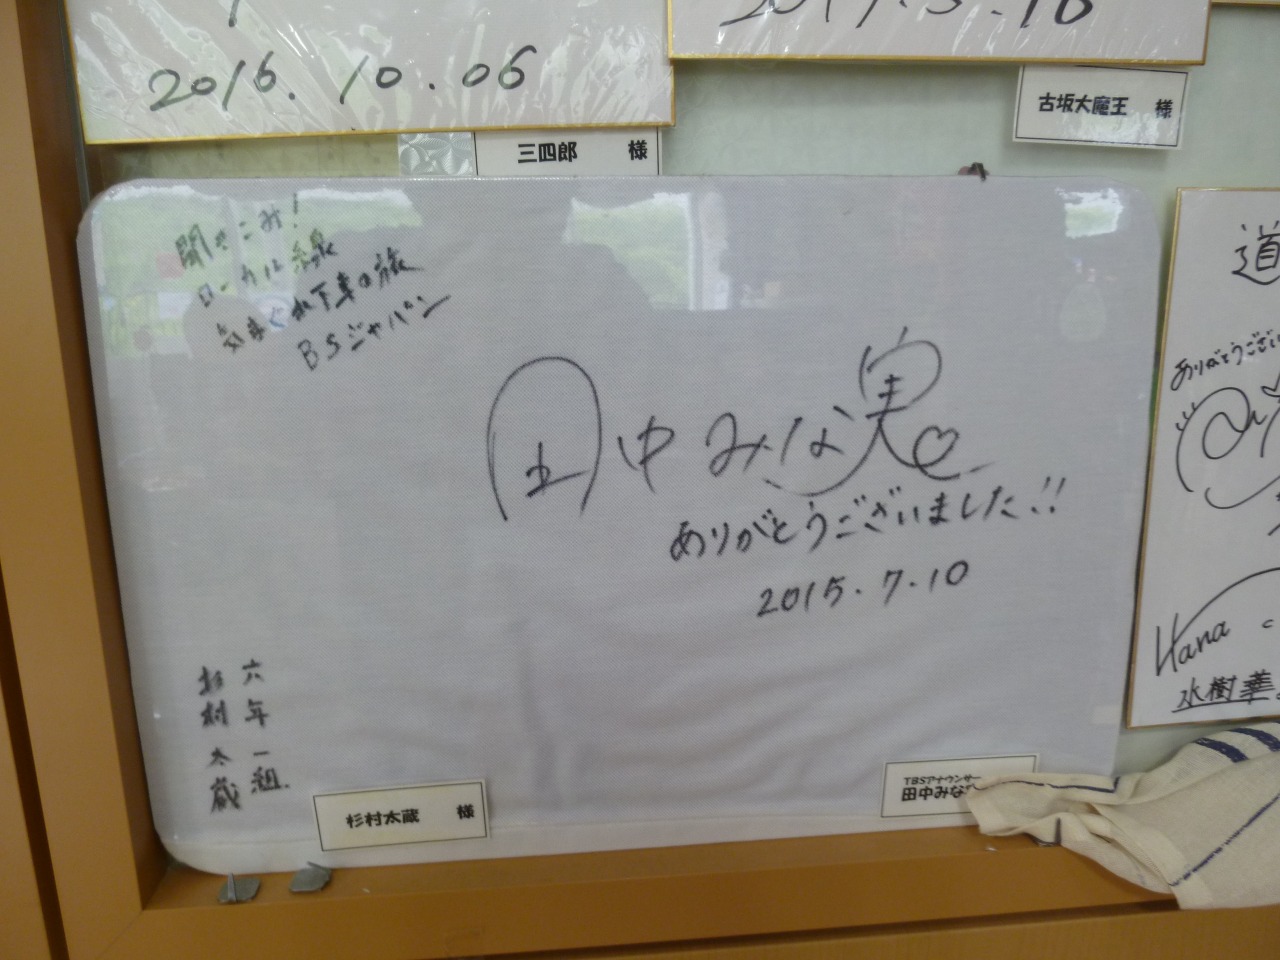 2016.10.06
三四郎 様
古坂大魔王 様
聞きこみ!
ローカル線
気まぐれ下車の旅
BSジャパン
田中みな実
ありがとうございました!!
2015.7.10
六年一組
杉村太蔵
杉村太蔵 様
TBSアナウンサー
田中みな
道
ありがとうござい
Hana
水樹華